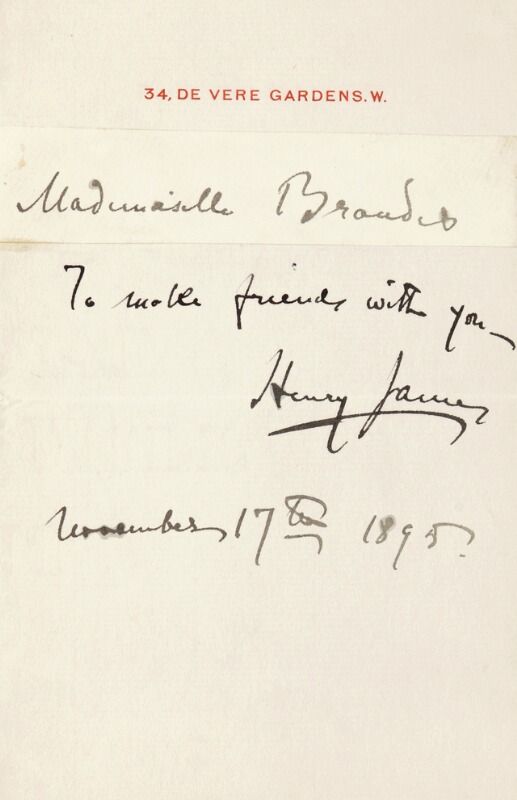 34, DE VERE GARDENS. W.
Mademoiselle Brandes
To make friends with you_
Henry James
November 17th 1895.